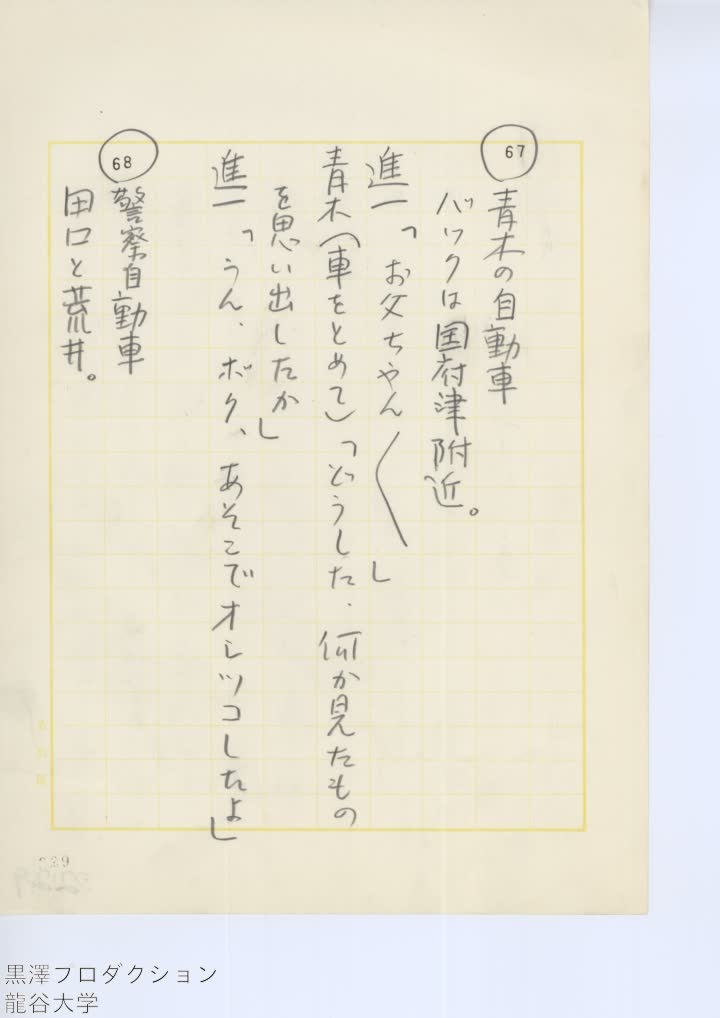 67
青木の自動車
バックは国府津附近。
進一「お父ちゃん〱」
青木(車をとめて)「どうした、何か見たもの
を思い出したか」
進一「うん、ボク、あそこでオシッコしたよ」
68
警察自動車
田口と荒井。
黒澤プロダクション
龍谷大学